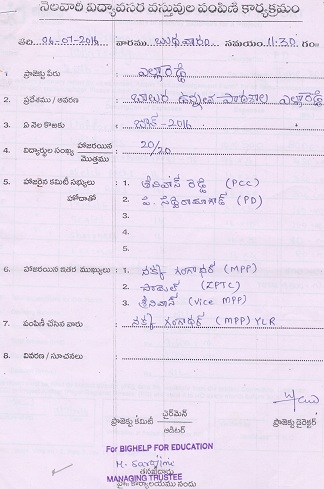 నెలవారి విద్యావసర వస్తువుల పంపిణి కార్యక్రమం
తేది 06-07-2016 వారము బుధవారం సమయం 11.30 గం॥
1. ప్రాజెక్టు పేరు : ఎల్లారెడ్డి
2. ప్రదేశము / ఆవరణ : బాలుర ఉన్నత పాఠశాల ఎల్లారెడ్డి
3. ఏ నెల కొరకు : జూన్-2016
4. విద్యార్థుల సంఖ్య హాజరయిన మొత్తము : 20/20
5. హాజరైన కమిటీ సభ్యులు హోదాతో : 1. శ్రీనివాస్ రెడ్డి (PCC)
2. పి. (PD)
3.
4.
5.
6. హాజరయిన ఇతర ముఖ్యులు : 1. నక్క గంగాధర్ (MPP)
2. సామెల్ (ZPTC)
3. శ్రీనివాస్ (Vice MPP)
7. పంపిణీ చేసిన వారు : నక్క గంగాధర్ (MPP) YLR
8. వివరణ / సూచనలు :
ప్రాజెక్టు కమిటీ చైర్‌మెన్ / ఆడిటర్
ప్రాజెక్టు డైరెక్టర్
For BIGHELP FOR EDUCATION
MANAGING TRUSTEE